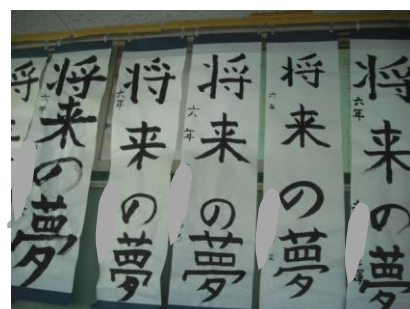 将来の夢
六年
将来の夢
六年
将来の夢
六年
将来の夢
六年
将来の夢
六
将来の夢